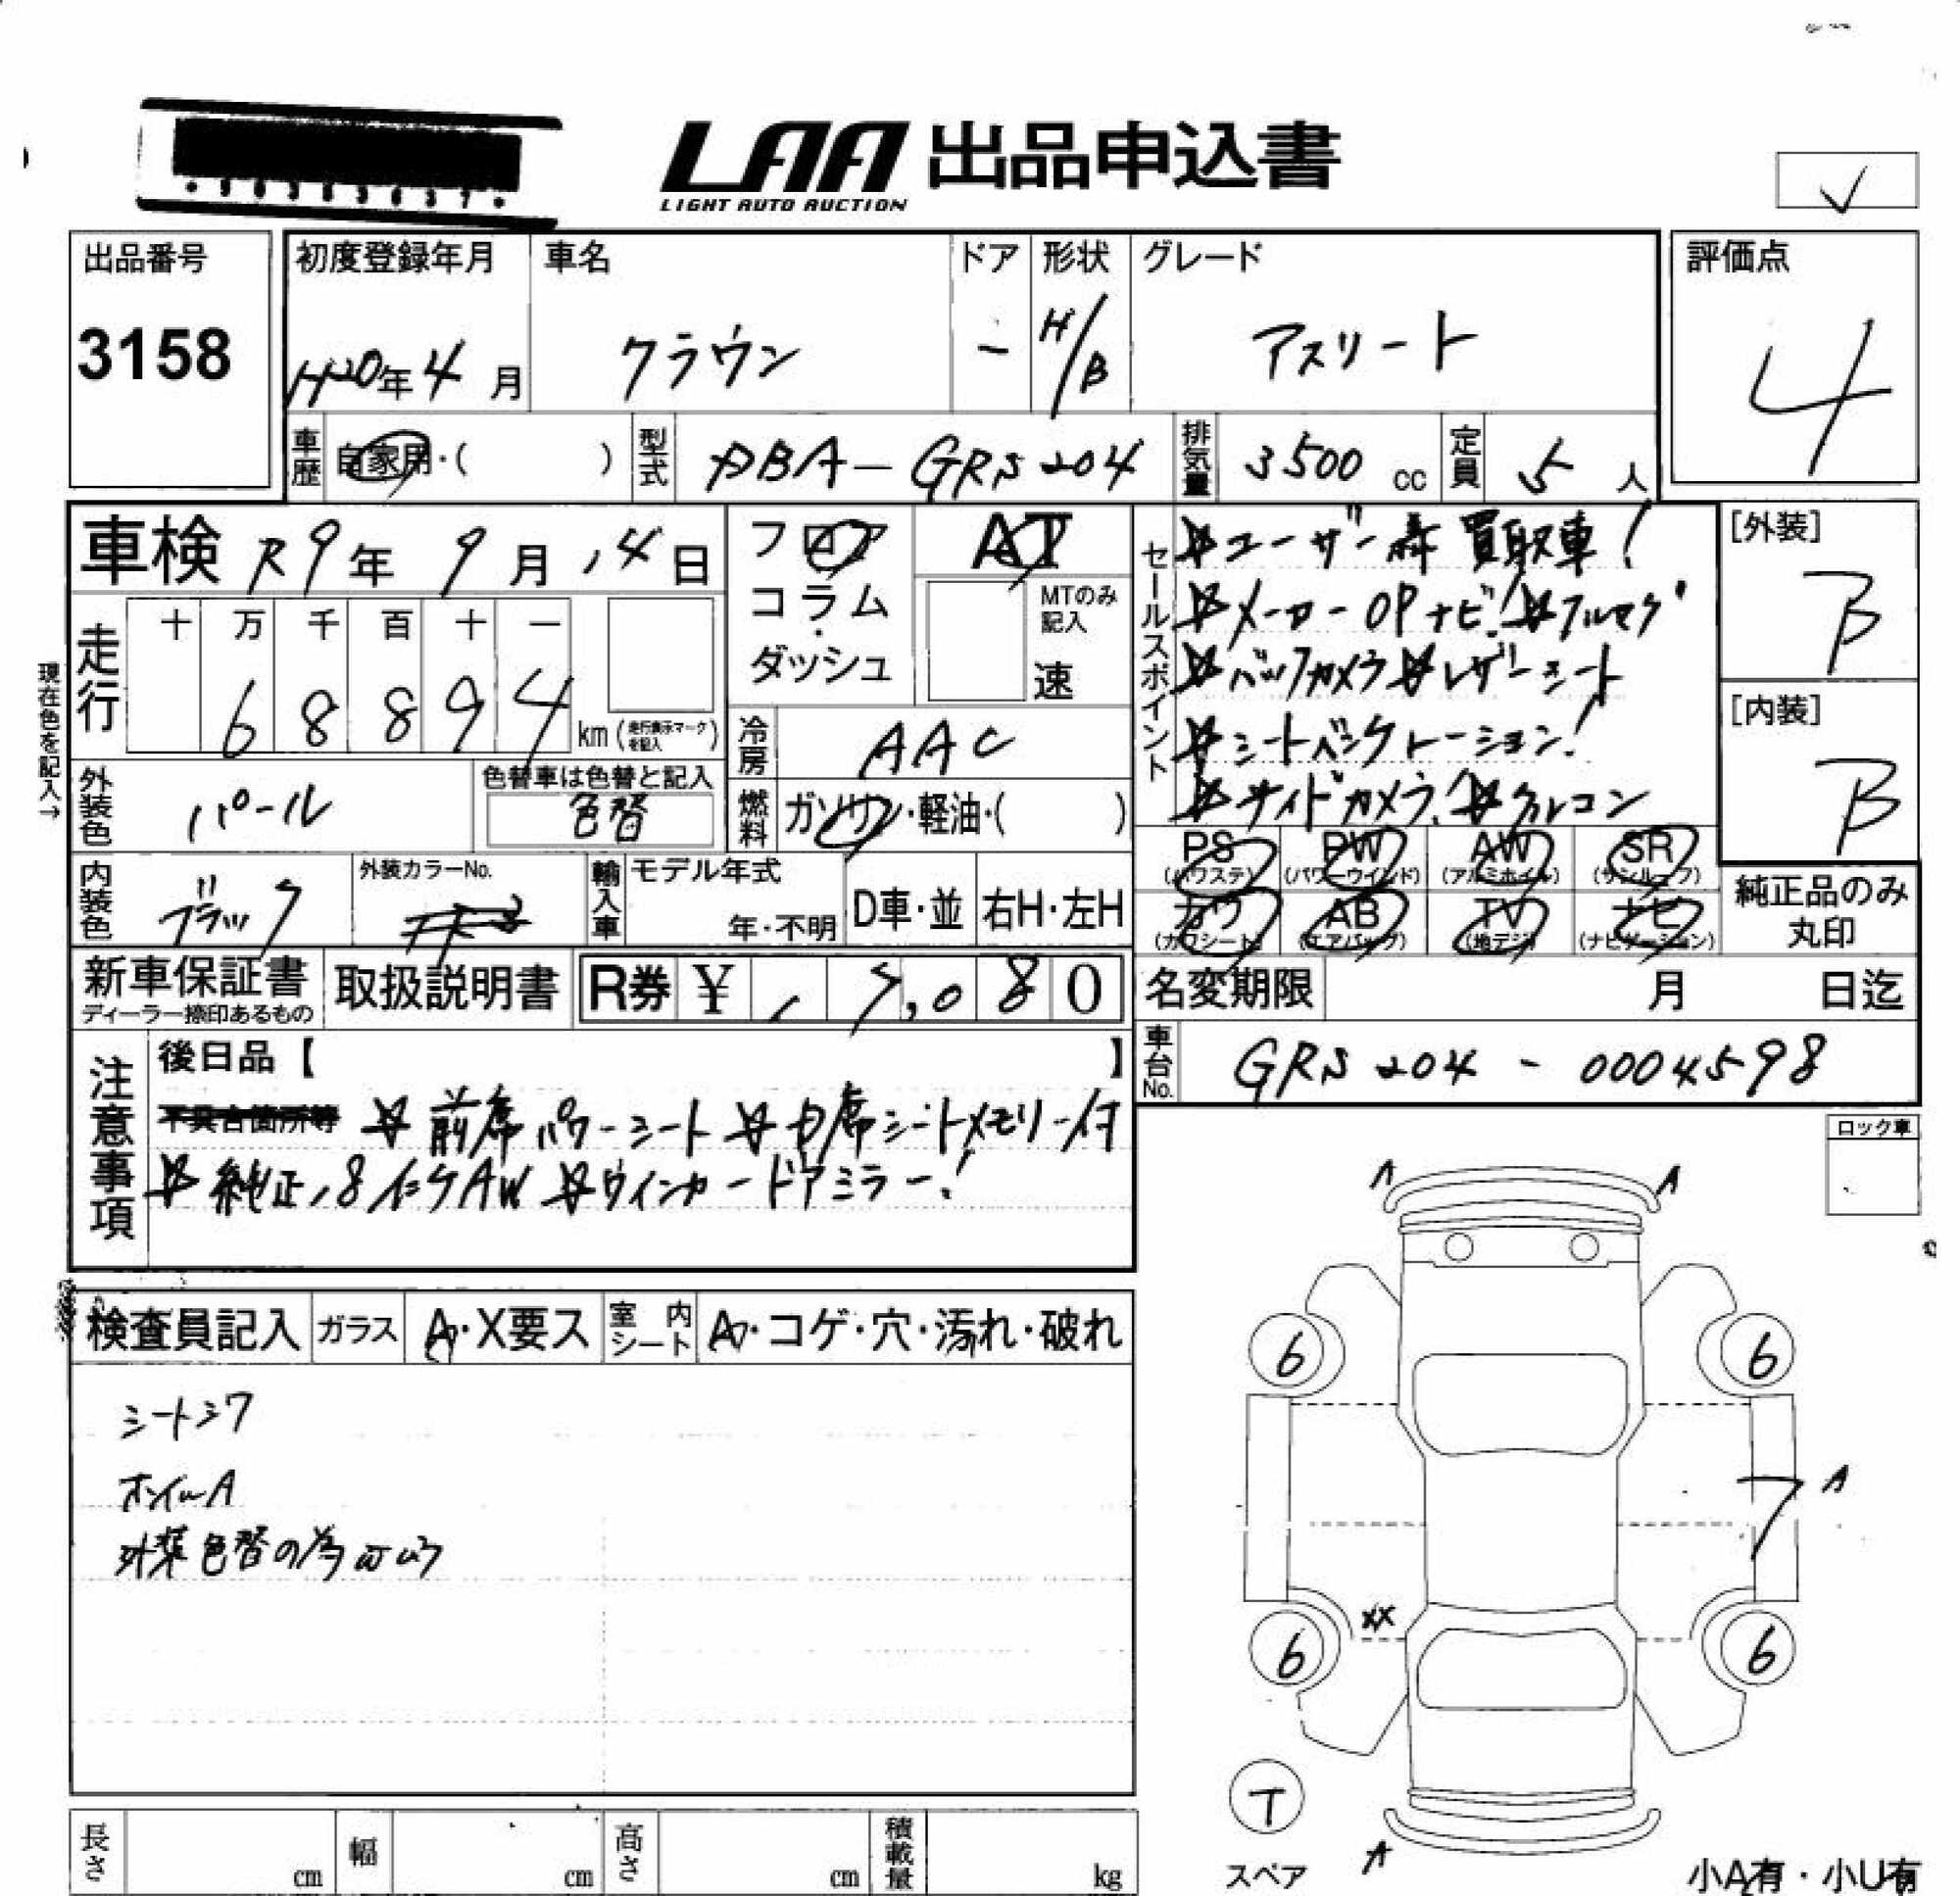 LAA 出品申込書
LIGHT AUTO AUCTION
出品番号
3158
初度登録年月
H20年4月
車名
クラウン
ドア
-
形状
H/B
グレード
アスリート
評価点
4
車歴
自家用・( )
型式
DBA-GRS204
排気量
3500 cc
定員
5人
車検 R9年9月14日
フロア
コラム
・
ダッシュ
AT
MTのみ
記入
速
セールスポイント
☆ユーザー様買取車!
☆メーカーOPナビ!☆フルセグ
☆バックカメラ☆レザーシート
☆シートベンチレーション!
☆サイドカメラ!☆クルコン
[外装]
B
[内装]
B
走行
十 万 千 百 十 一
6 8 8 9 4
km(走行表示マークを記入)
現在色を記入→
外装色
パール
色替車は色替と記入
色替
冷房
AAC
燃料
ガソリン・軽油・( )
内装色
ブラック
外装カラーNo.
輸入車
モデル年式
年・不明
D車・並
右H・左H
PS
(パワステ)
PW
(パワーウインド)
AW
(アルミホイル)
SR
(サンルーフ)
カワ
(カワシート)
AB
(エアバッグ)
TV
(地デジ)
ナビ
(ナビゲーション)
純正品のみ
丸印
新車保証書
ディーラー捺印あるもの
取扱説明書
R券 ¥ 1 5,080
名変期限 月 日迄
車台No.
GRS204-0004598
注意事項
後日品【 】
不具合箇所等 ☆前席パワーシート☆D席シートメモリー付
☆純正18インチAW☆ウインカードアミラー!
ロック車
検査員記入
ガラス
A・X要ス
室内シート
A・コゲ・穴・汚れ・破れ
シートシワ
ホイールA
外装色替の為
A A
6 6
7 A
XX
6 6
T
スペア
A
小A有・小U有
長さ cm
幅 cm
高さ cm
積載量 kg